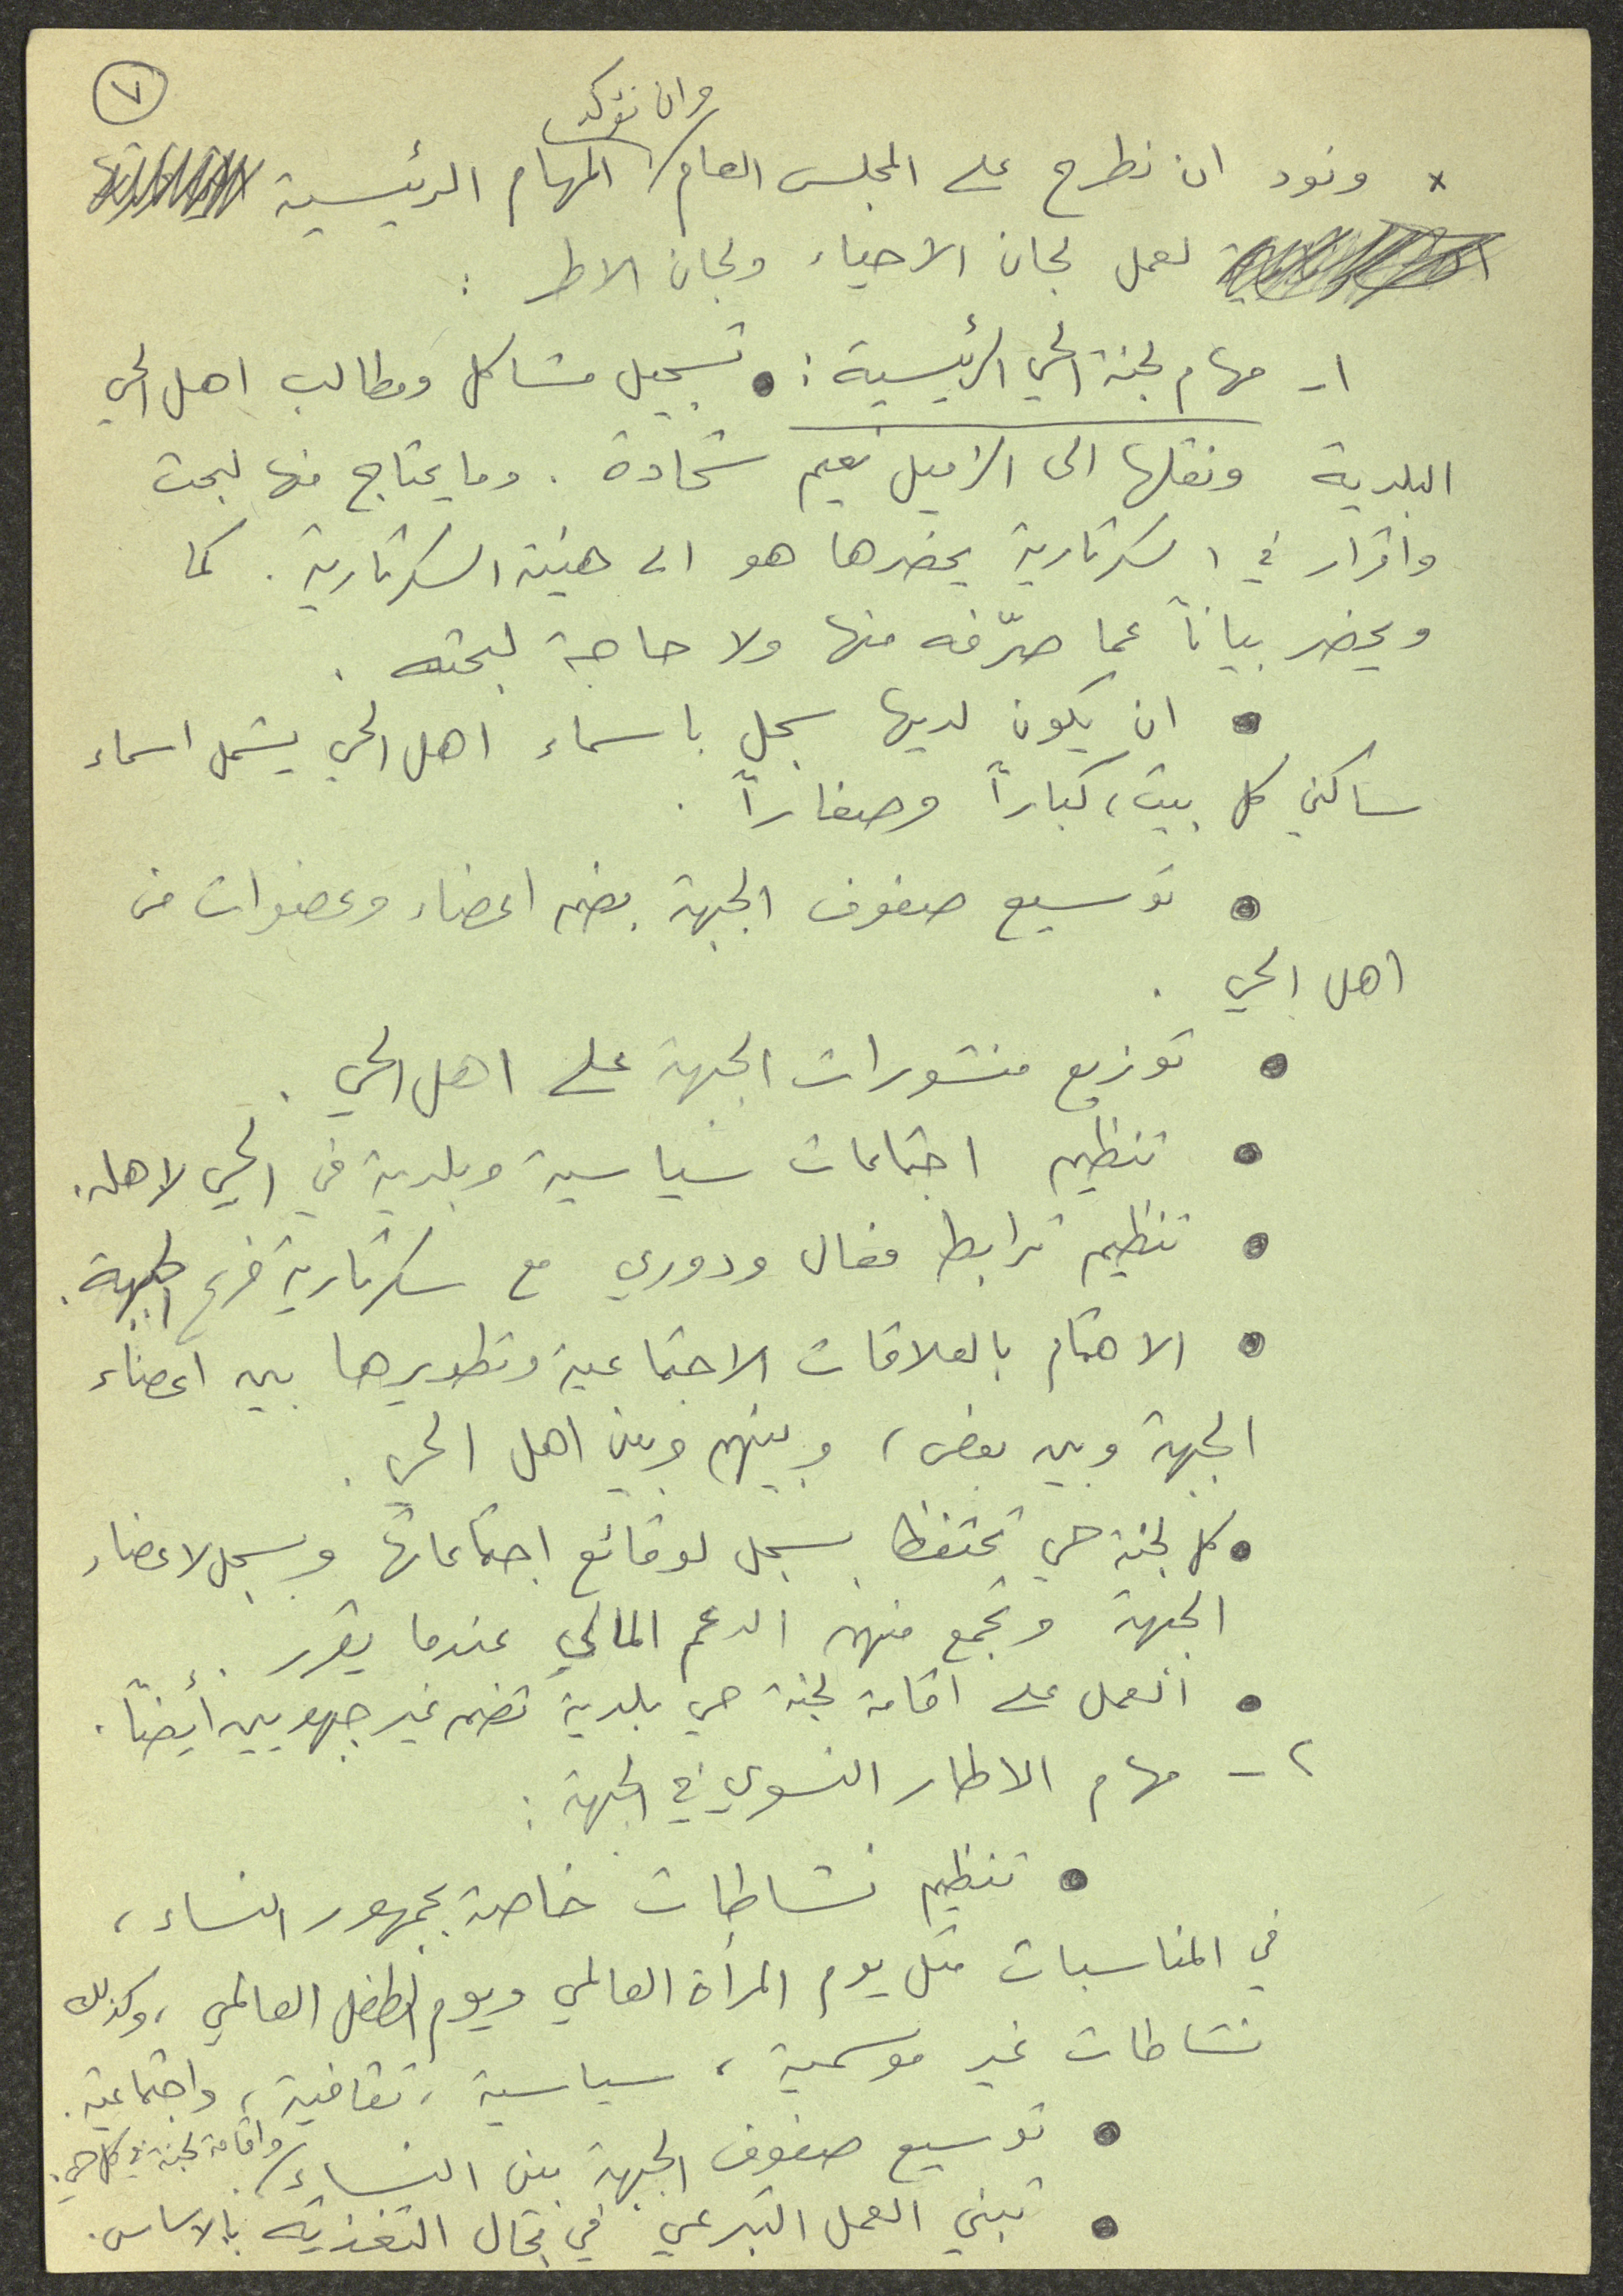 ٧
وان نؤكد
× ونود ان نطرح على المجلس العام / المهام الرئيسية
لعمل لجان الاحياء ولجان الاطر :
١- مهام لجنة الحي الرئيسية : • تسجيل مشاكل ومطالب اهل الحي
البلدية ونقلها الى الزميل نعيم شحادة . وما يحتاج منها لبحث
واقرار في السكرتارية يحضرها هو الى هيئة السكرتارية . كما
ويحضر بياناً عما صرّفه منها ولا حاجة لبحثه .
• ان يكون لديها سجل باسماء اهل الحي يشمل اسماء
ساكني كل بيت، كباراً وصغاراً .
• توسيع صفوف الجبهة بضم اعضاء وعضوات من
اهل الحي .
• توزيع منشورات الجبهة على اهل الحي .
• تنظيم اجتماعات سياسية وبلدية في الحي لاهله.
• تنظيم ترابط فعال ودوري مع سكرتارية فرع الجبهة.
• الاهتمام بالعلاقات الاجتماعية وتطويرها بين اعضاء
الجبهة وبين بعض ، وبينهم وبين اهل الحي .
• كل لجنة حي تحتفظ بسجل لوقائع اجتماعاتها وبسجل لاعضاء
الجبهة وتجمع منهم الدعم المالي عندما يقرر .
• العمل على اقامة لجنة حي بلدية تضم غير جبهويين أيضاً.
٢- مهام الاطار النسوي في الجبهة :
• تنظيم نشاطات خاصة بجمهور النساء ،
في المناسبات مثل يوم المرأة العالمي ويوم الطفل العالمي ، وكذلك
نشاطات غير موسمية ، سياسية ، ثقافية ، واجتماعية.
• توسيع صفوف الجبهة بين النساء / واقامة لجنة في كل حي.
• تبني العمل التبرعي في مجال التغذية بالاساس.